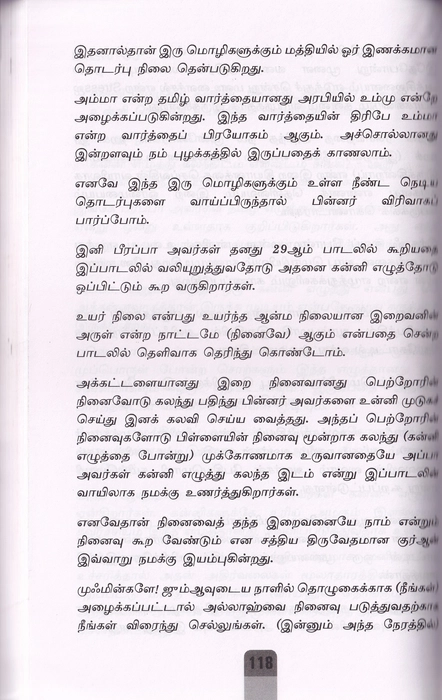 இதனால்தான் இரு மொழிகளுக்கும் மத்தியில் ஓர் இணக்கமான
தொடர்பு நிலை தென்படுகிறது.
அம்மா என்ற தமிழ் வார்த்தையானது அரபியில் உம்மு என்றே
அழைக்கப்படுகின்றது. இந்த வார்த்தையின் திரிபே உம்மா
என்ற வார்த்தைப் பிரயோகம் ஆகும். அச்சொல்லானது
இன்றளவும் நம் புழக்கத்தில் இருப்பதைக் காணலாம்.
எனவே இந்த இரு மொழிகளுக்கும் உள்ள நீண்ட நெடிய
தொடர்புகளை வாய்ப்பிருந்தால் பின்னர் விரிவாகப்
பார்ப்போம்.
இனி பீரப்பா அவர்கள் தனது 29ஆம் பாடலில் கூறியதை
இப்பாடலில் வலியுறுத்துவதோடு அதனை கன்னி எழுத்தோடு
ஒப்பிட்டும் கூற வருகிறார்கள்.
உயர் நிலை என்பது உயர்ந்த ஆன்ம நிலையான இறைவனின்
அருள் என்ற நாட்டமே (நினைவே) ஆகும் என்பதை சென்ற
பாடலில் தெளிவாக தெரிந்து கொண்டோம்.
அக்கட்டளையானது இறை நினைவானது பெற்றோரின்
நினைவோடு கலந்து பதிந்து பின்னர் அவர்களை உன்னி முடுகச்
செய்து இனக் கலவி செய்ய வைத்தது. அந்தப் பெற்றோரின்
நினைவுகளோடு பிள்ளையின் நினைவு மூன்றாக கலந்து (கன்னி
எழுத்தை போன்று) முக்கோணமாக உருவானதையே அப்பா
அவர்கள் கன்னி எழுத்து கலந்த இடம் என்று இப்பாடலின்
வாயிலாக நமக்கு உணர்த்துகிறார்கள்.
எனவேதான் நினைவைத் தந்த இறைவனையே நாம் என்றும்
நினைவு கூற வேண்டும் என சத்திய திருவேதமான குர்ஆன்
இவ்வாறு நமக்கு இயம்புகின்றது.
முஃமின்களே! ஜும்ஆவுடைய நாளில் தொழுகைக்காக (நீங்கள்)
அழைக்கப்பட்டால் அல்லாஹ்வை நினைவு படுத்துவதற்காக
நீங்கள் விரைந்து செல்லுங்கள். (இன்னும் அந்த நேரத்தில்)
118